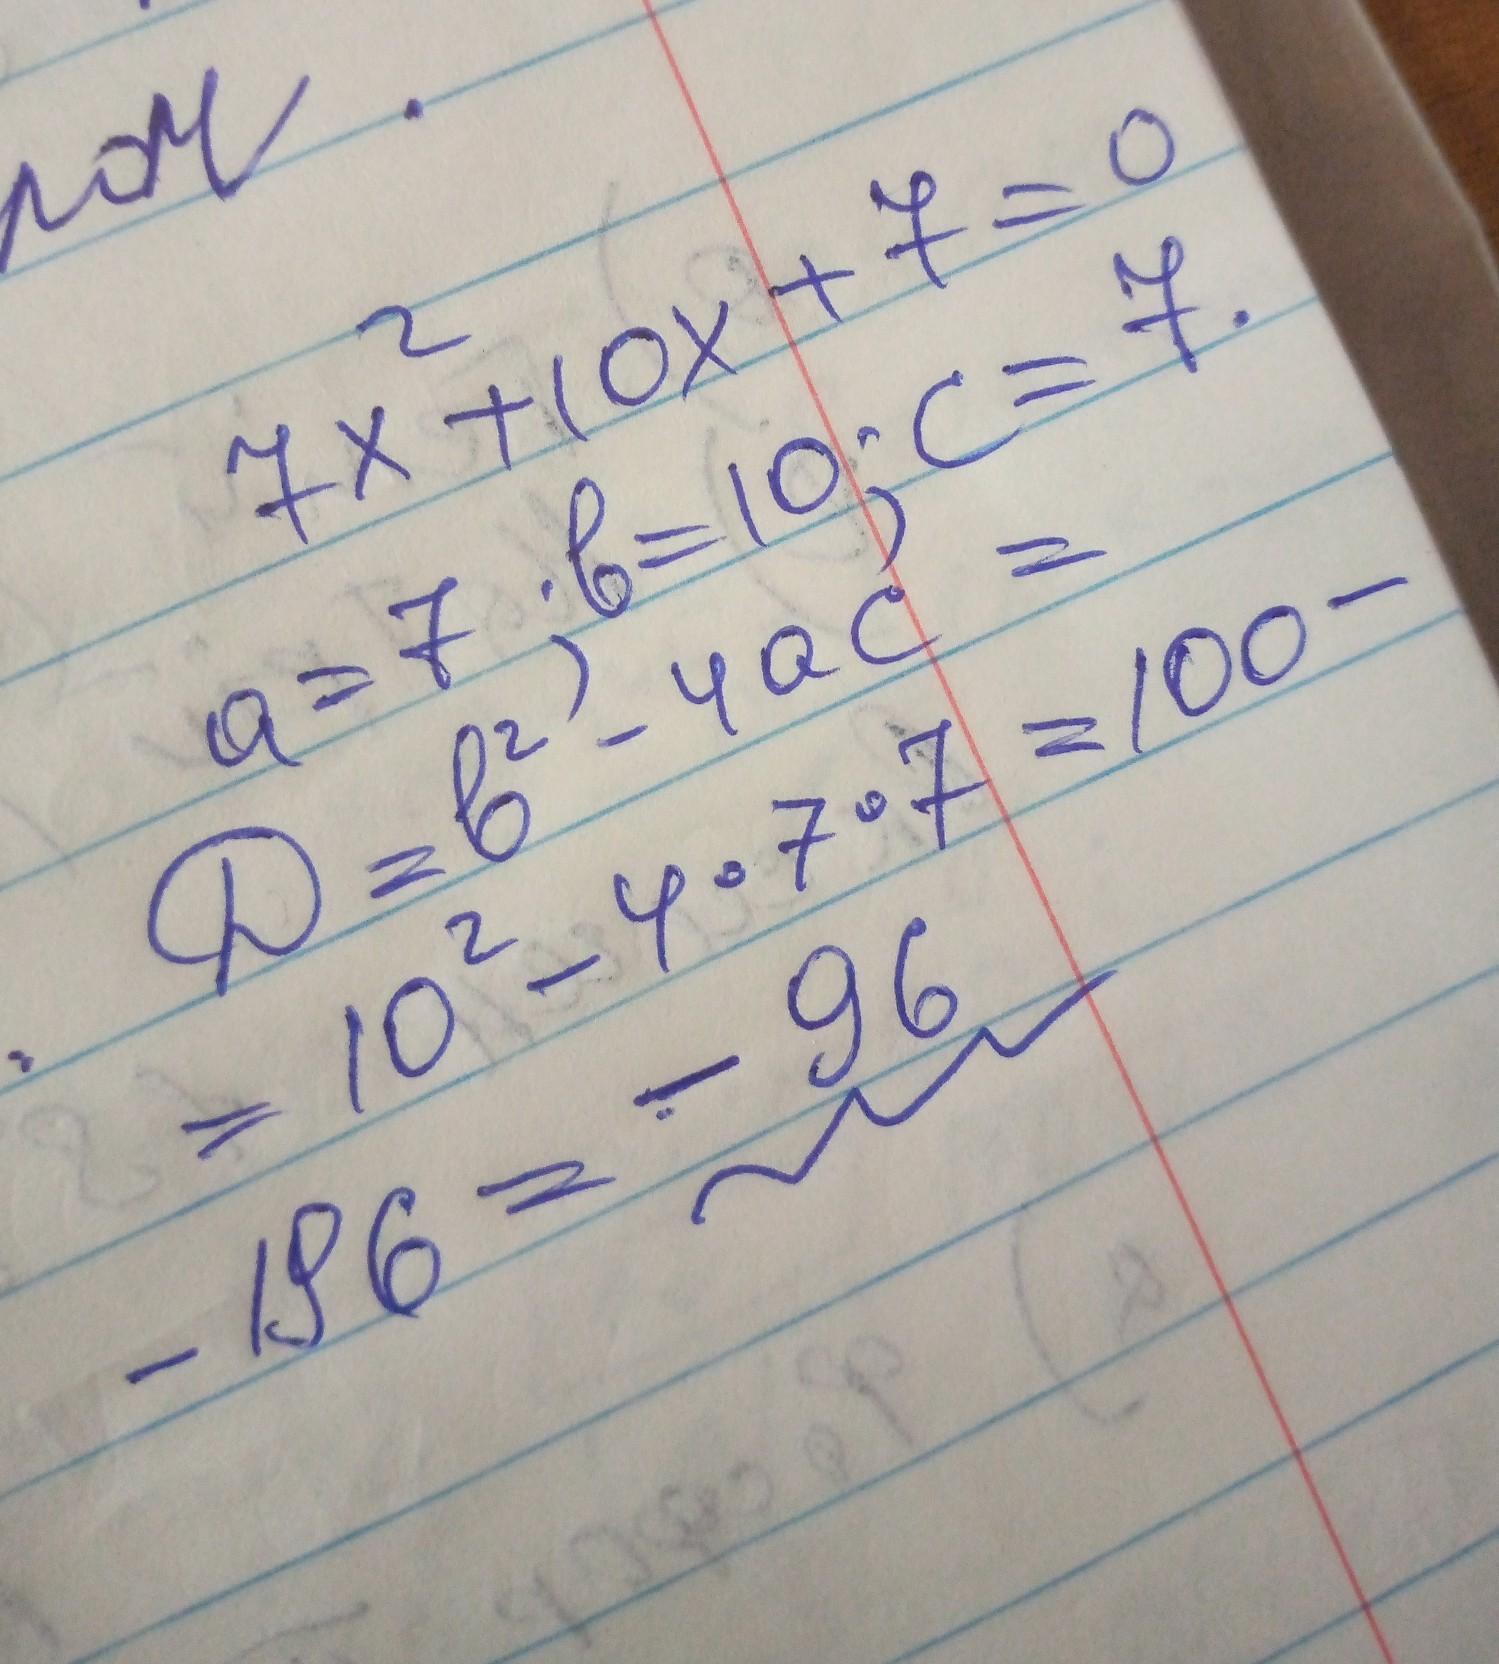 7x² + 10x + 7 = 0
a = 7; b = 10; c = 7.
D = b² - 4ac =
= 10² - 4 · 7 · 7 = 100 -
- 196 = - 96